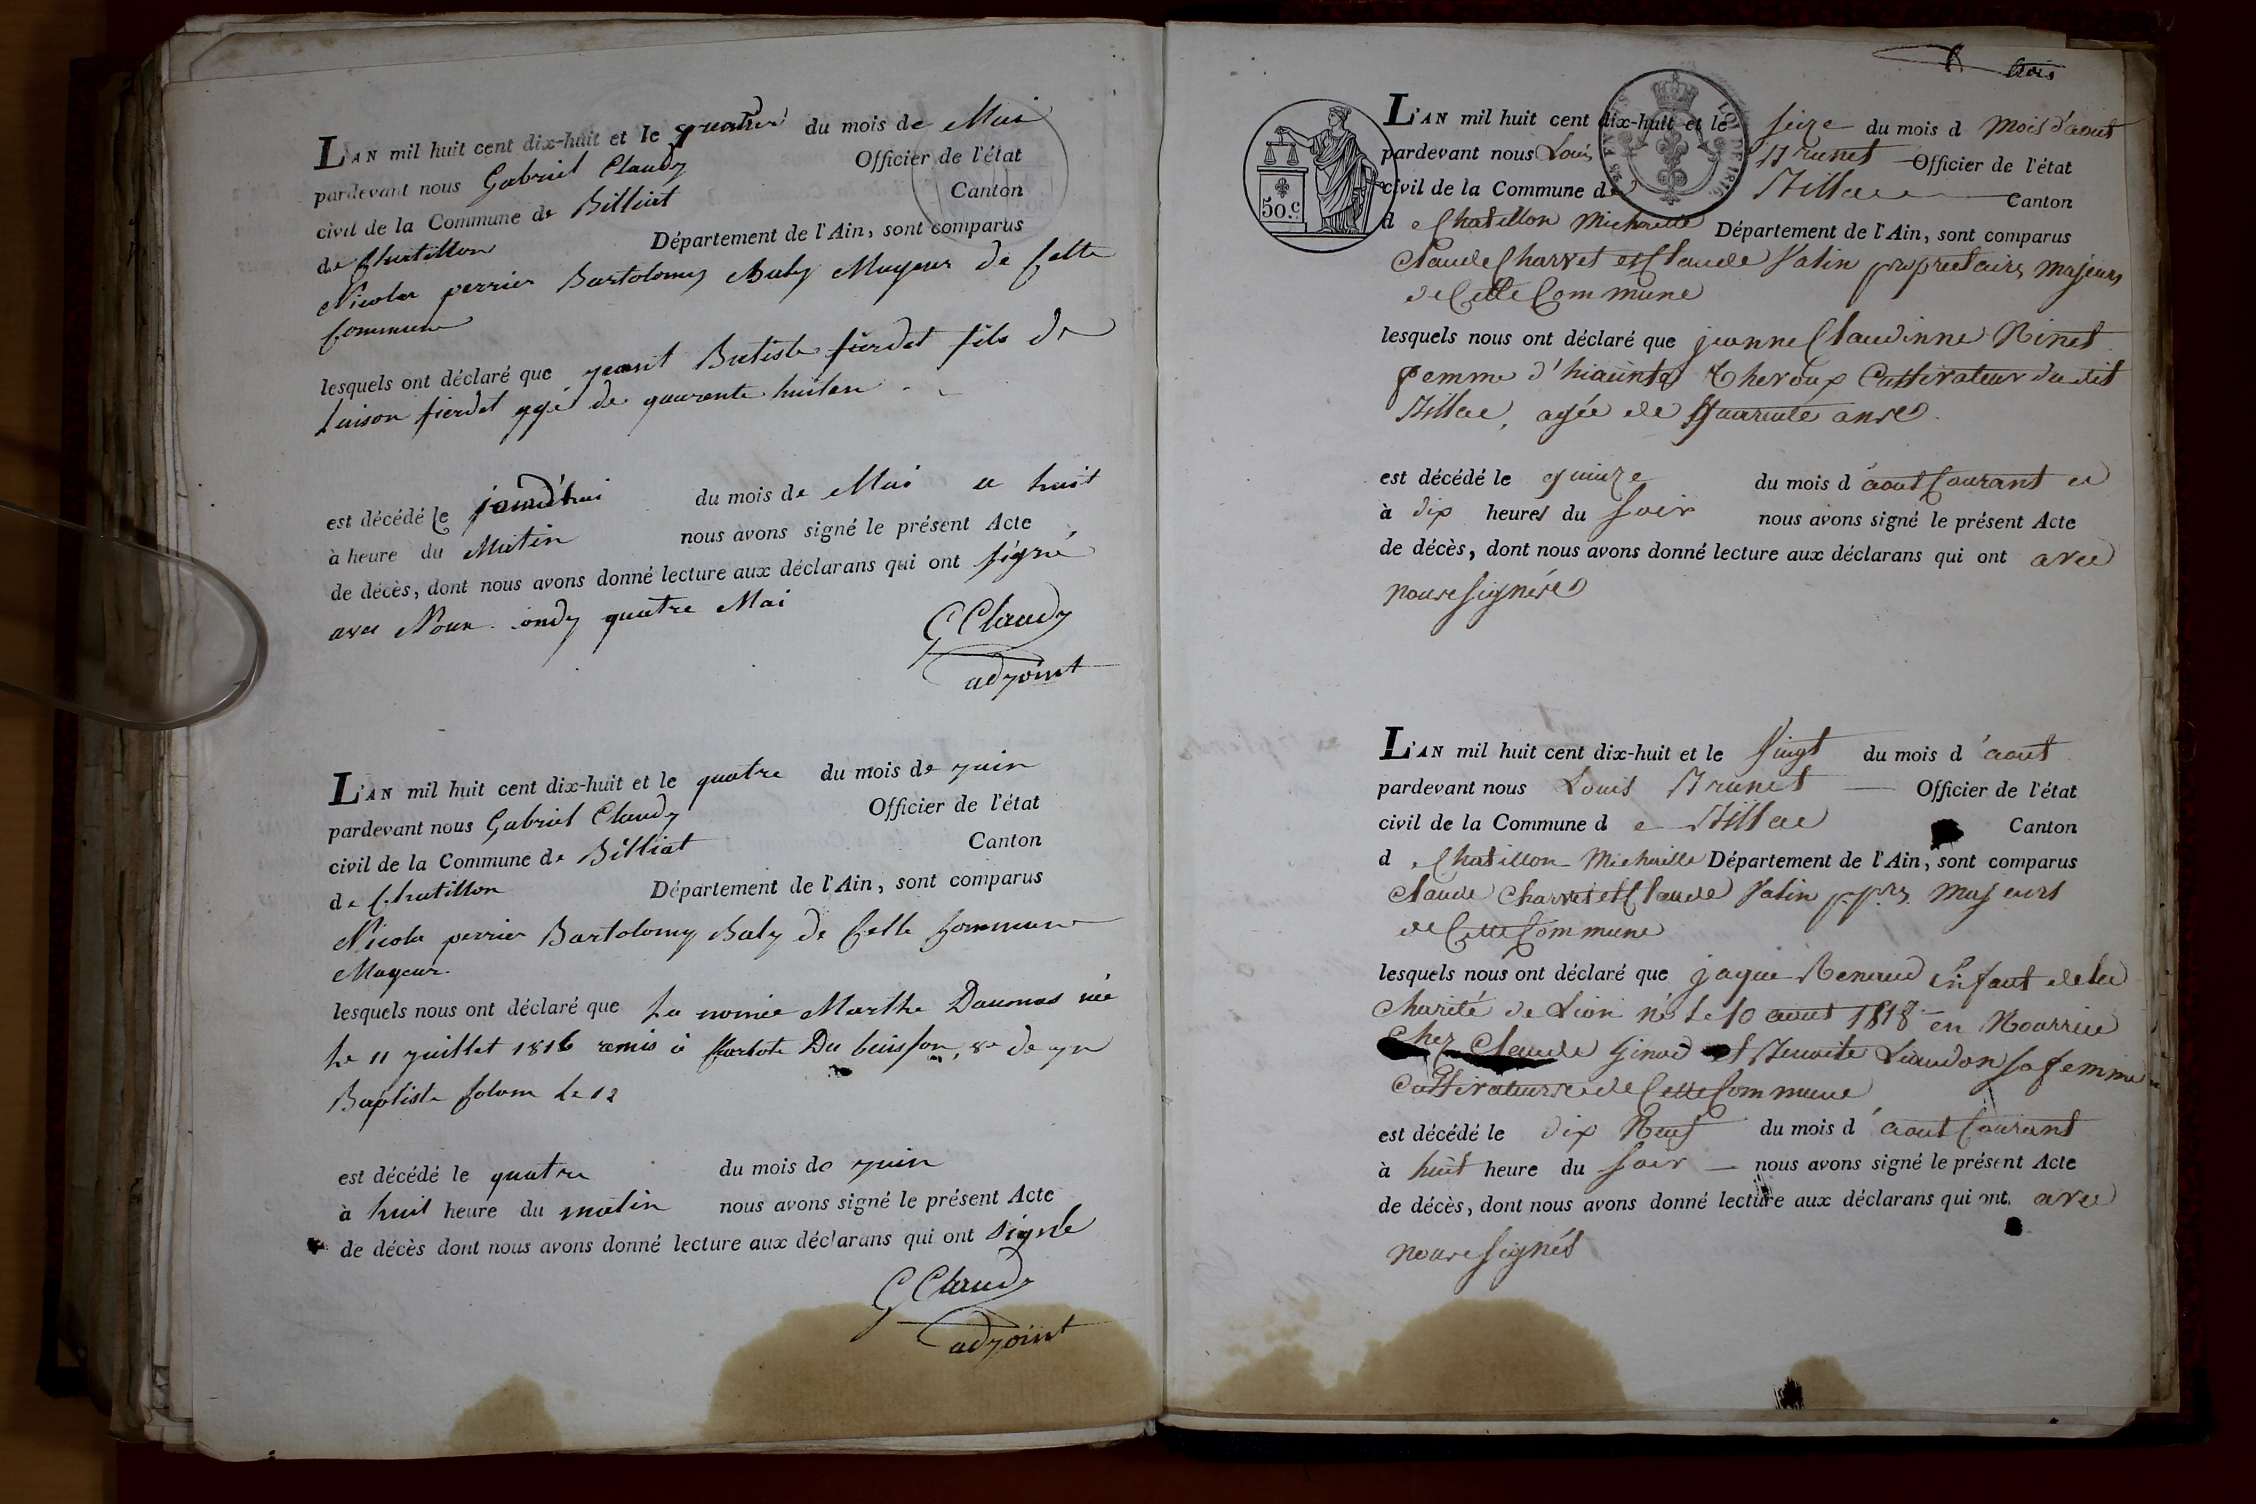 L'AN mil huit cent dix-huit et le quatre du mois de Mai
pardevant nous Gabriel Claudy Officier de l'état
civil de la Commune de Billiat Canton
de Chatillon Département de l'Ain, sont comparus
Nicolas perrier Bartolomy Baly Mayeur de Cette
Commune
lesquels ont déclaré que jeant Batiste fierdet fils de
fierdet agé de quarente huitan
est décédé le jourd'hui du mois de Mai a huit
à heure du Matin nous avons signé le présent Acte
de décès, dont nous avons donné lecture aux déclarans qui ont signé
avec Nous quatre Mai
G Claudy
adjoint
L'AN mil huit cent dix-huit et le quatre du mois de juin
pardevant nous Gabriel Claudy Officier de l'état
civil de la Commune de Billiat Canton
de Chatillon Département de l'Ain, sont comparus
Nicolas perrier Bartolomy Baly de Cette Commune
Mayeur.
lesquels nous ont déclaré que La nomée Marthe Daumas née
Le 11 juillet 1816 remis à Du buisson, de jn
Baptiste Le 12
est décédé le quatre du mois de juin
à huit heure du matin nous avons signé le présent Acte
de décès dont nous avons donné lecture aux déclarans qui ont signé
G Claudy
adjoint
trois
50.c
LOI DE 1816.
L'AN mil huit cent dix-huit et le seize du mois d Mois d'aout
pardevant nous Louis Brunet Officier de l'état
civil de la Commune de Billiat Canton
d e Chatillon Michaille Département de l'Ain, sont comparus
Claude Charvet et Claude Valin propriétaires majeurs
de Cette Commune
lesquels nous ont déclaré que jeanne Claudinne Binet
femme d'hiaiinte Theroux Cultivateur dudit
Billiat, agée de quarante ans
est décédé le quinze du mois d'aout Courant
à dix heures du Soir nous avons signé le présent Acte
de décès, dont nous avons donné lecture aux déclarans qui ont avec
nous signés
L'AN mil huit cent dix-huit et le vingt du mois d'aout
pardevant nous Louis Brunet Officier de l'état
civil de la Commune d e Billiat Canton
d e Chatillon Michaille Département de l'Ain, sont comparus
Claude Charvet et Claude Valin p.p.res majeurs
de Cette Commune
lesquels nous ont déclaré que jaque Renaud Enfant de la
Charité de Lion né Le 10 aout 1818 en Nourrice
Chez Claude Ginod et Benoite Liaudon sa femme
Cultivateurs de Cette Commune
est décédé le dix Neuf du mois d'aout Courant
à huit heure du Soir nous avons signé le présent Acte
de décès, dont nous avons donné lecture aux déclarans qui ont avec
nous signés